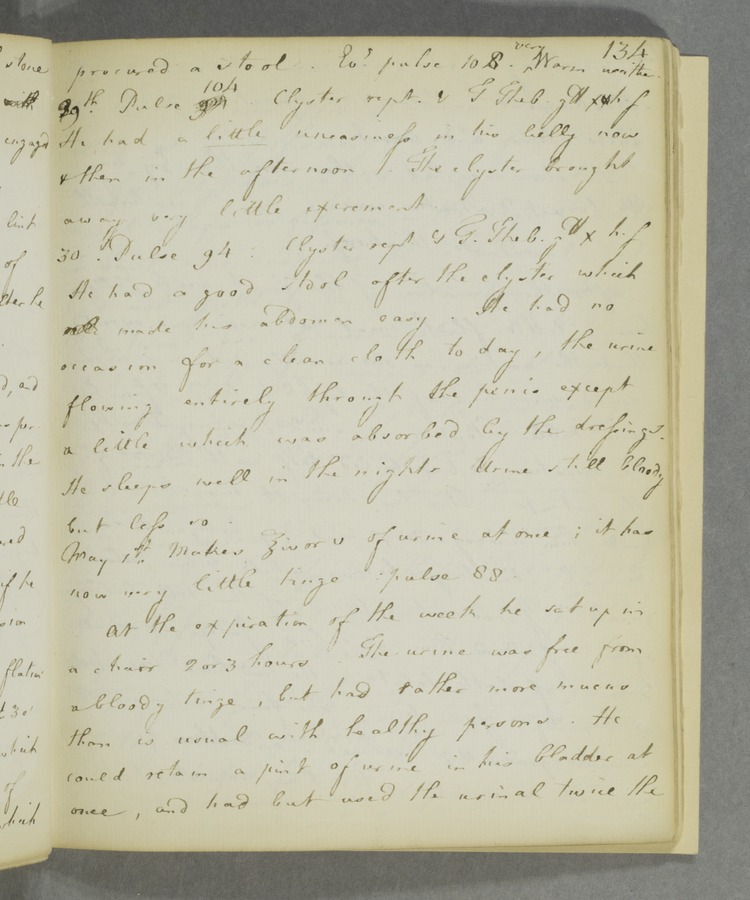 134
procured a stool. Evg pulse 108. very Warm weather
29th. Pulse 104 Clyster rept. & T Theb. gtt xx h.f
He had a little uneasiness in his belly now
& then in the afternoon. The clyster brought
away very little excrement.
30. Pulse 94. Clyster rept & T. Theb. gtt x h.f
He had a good stool after the clyster which
made his abdomen easy. He had no
occasion for a clean cloth to day, the urine
flowing entirely through the penis except
a little which was absorbed by the dressings.
He sleeps well in the nights Urine still bloody
but less so.
May 1st. Makes ℥iv or v of urine at once; it has
now very little tinge : pulse 88.
At the expiration of the week he sat up in
a chair 2 or 3 hours. The urine was free from
a bloody tinge, but had rather more mucus
than is usual with healthy persons. He
could retain a pint of urine in his bladder at
once, and had but used the urinal twice the
stone
with
engaged
lint
of
after he
d, and
the
which
of
which